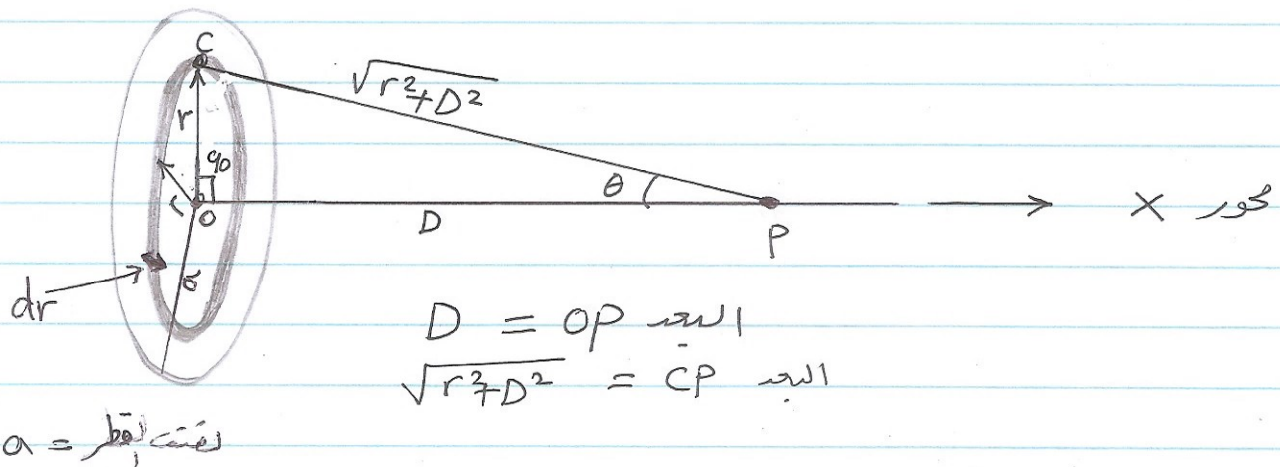 C
√r²+D²
r
90
θ
r
O
D
P
محور X
σ
dr
D = OP البعد
√r²+D² = CP البعد
a = نصف القطر